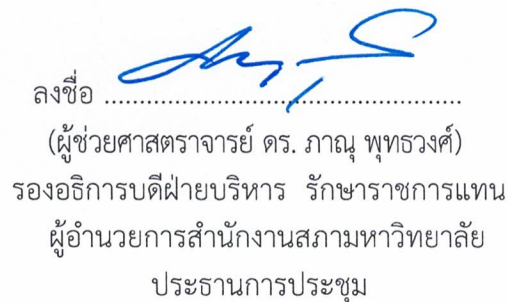 ลงชื่อ ..................................................
(ผู้ช่วยศาสตราจารย์ ดร. ภาณุ พุทธวงศ์)
รองอธิการบดีฝ่ายบริหาร รักษาราชการแทน
ผู้อำนวยการสำนักงานสภามหาวิทยาลัย
ประธานการประชุม